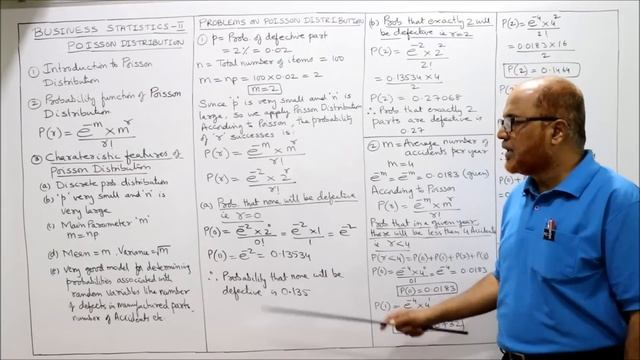 BUSINESS STATISTICS-II
POISSON DISTRIBUTION
① Introduction to Poisson
Distribution
② Probability function of Poisson
Distribution
P(r) = e^-m × m^r
r!
③ Charateristic features of
Poisson Distribution
(a) Discrete prob distribution
(b) 'p' very small and 'n' is
very large
(c) Main Parameter 'm'
m = np
(d) Mean = m
(e) Very good model for determining
probabilities associated with
random variables like number
of defects in manufactured parts,
number of Accidents etc
PROBLEMS ON POISSON DISTRIBUTION
① p = Prob. of defective part
= 2% = 0.02
n = Total number of items = 100
m = np = 100 × 0.02 = 2
m = 2
Since 'p' is very small and 'n' is
large, so we apply Poisson Distribution
According to Poisson, the probability
of 'r' successes is
P(r) = e^-m × m^r
r!
P(r) = e^-2 × 2^r
r!
(a) Prob that none will be defective
ie r=0
P(0) = e^-2 × 2^0 = e^-2 × 1 = e^-2
0! 1
= e^-2 = 0.13534
∴ Probability that none will be
defective is 0.135
(b) Prob that exactly 2 will
be defective ie r=2
P(2) = e^-2 × 2^2
2!
= 0.13534 × 4
2
P(2) = 0.27068
∴ Prob that exactly 2
parts are defective is
0.27
② m = Average number of
accidents per year
m = 4
e^-m = e^-4 = 0.0183 (given)
According to Poisson
P(r) = e^-m × m^r
r!
Prob that in a given year
there will be less than 4 Accidents
ie r<4
P(r<4) = P(0)+P(1)+P(2)+P(3)
P(0) = e^-4 × 4^0 = e^-4 = 0.0183
0!
P(0) = 0.0183
P(1) = e^-4 × 4^1
P(2) = e^-4 × 4^2
2!
= 0.0183 × 16
2
P(2) = 0.1464